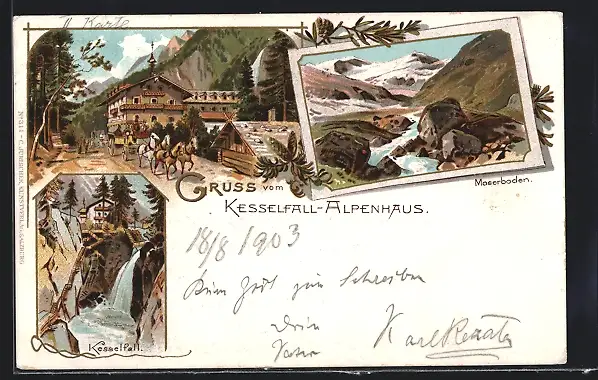 II Karte
GRUSS vom
KESSELFALL-ALPENHAUS.
Moserboden.
Kesselfall.
18/8 1903
Keine Zeit zum Schreiben
Dein
Vater
Karl